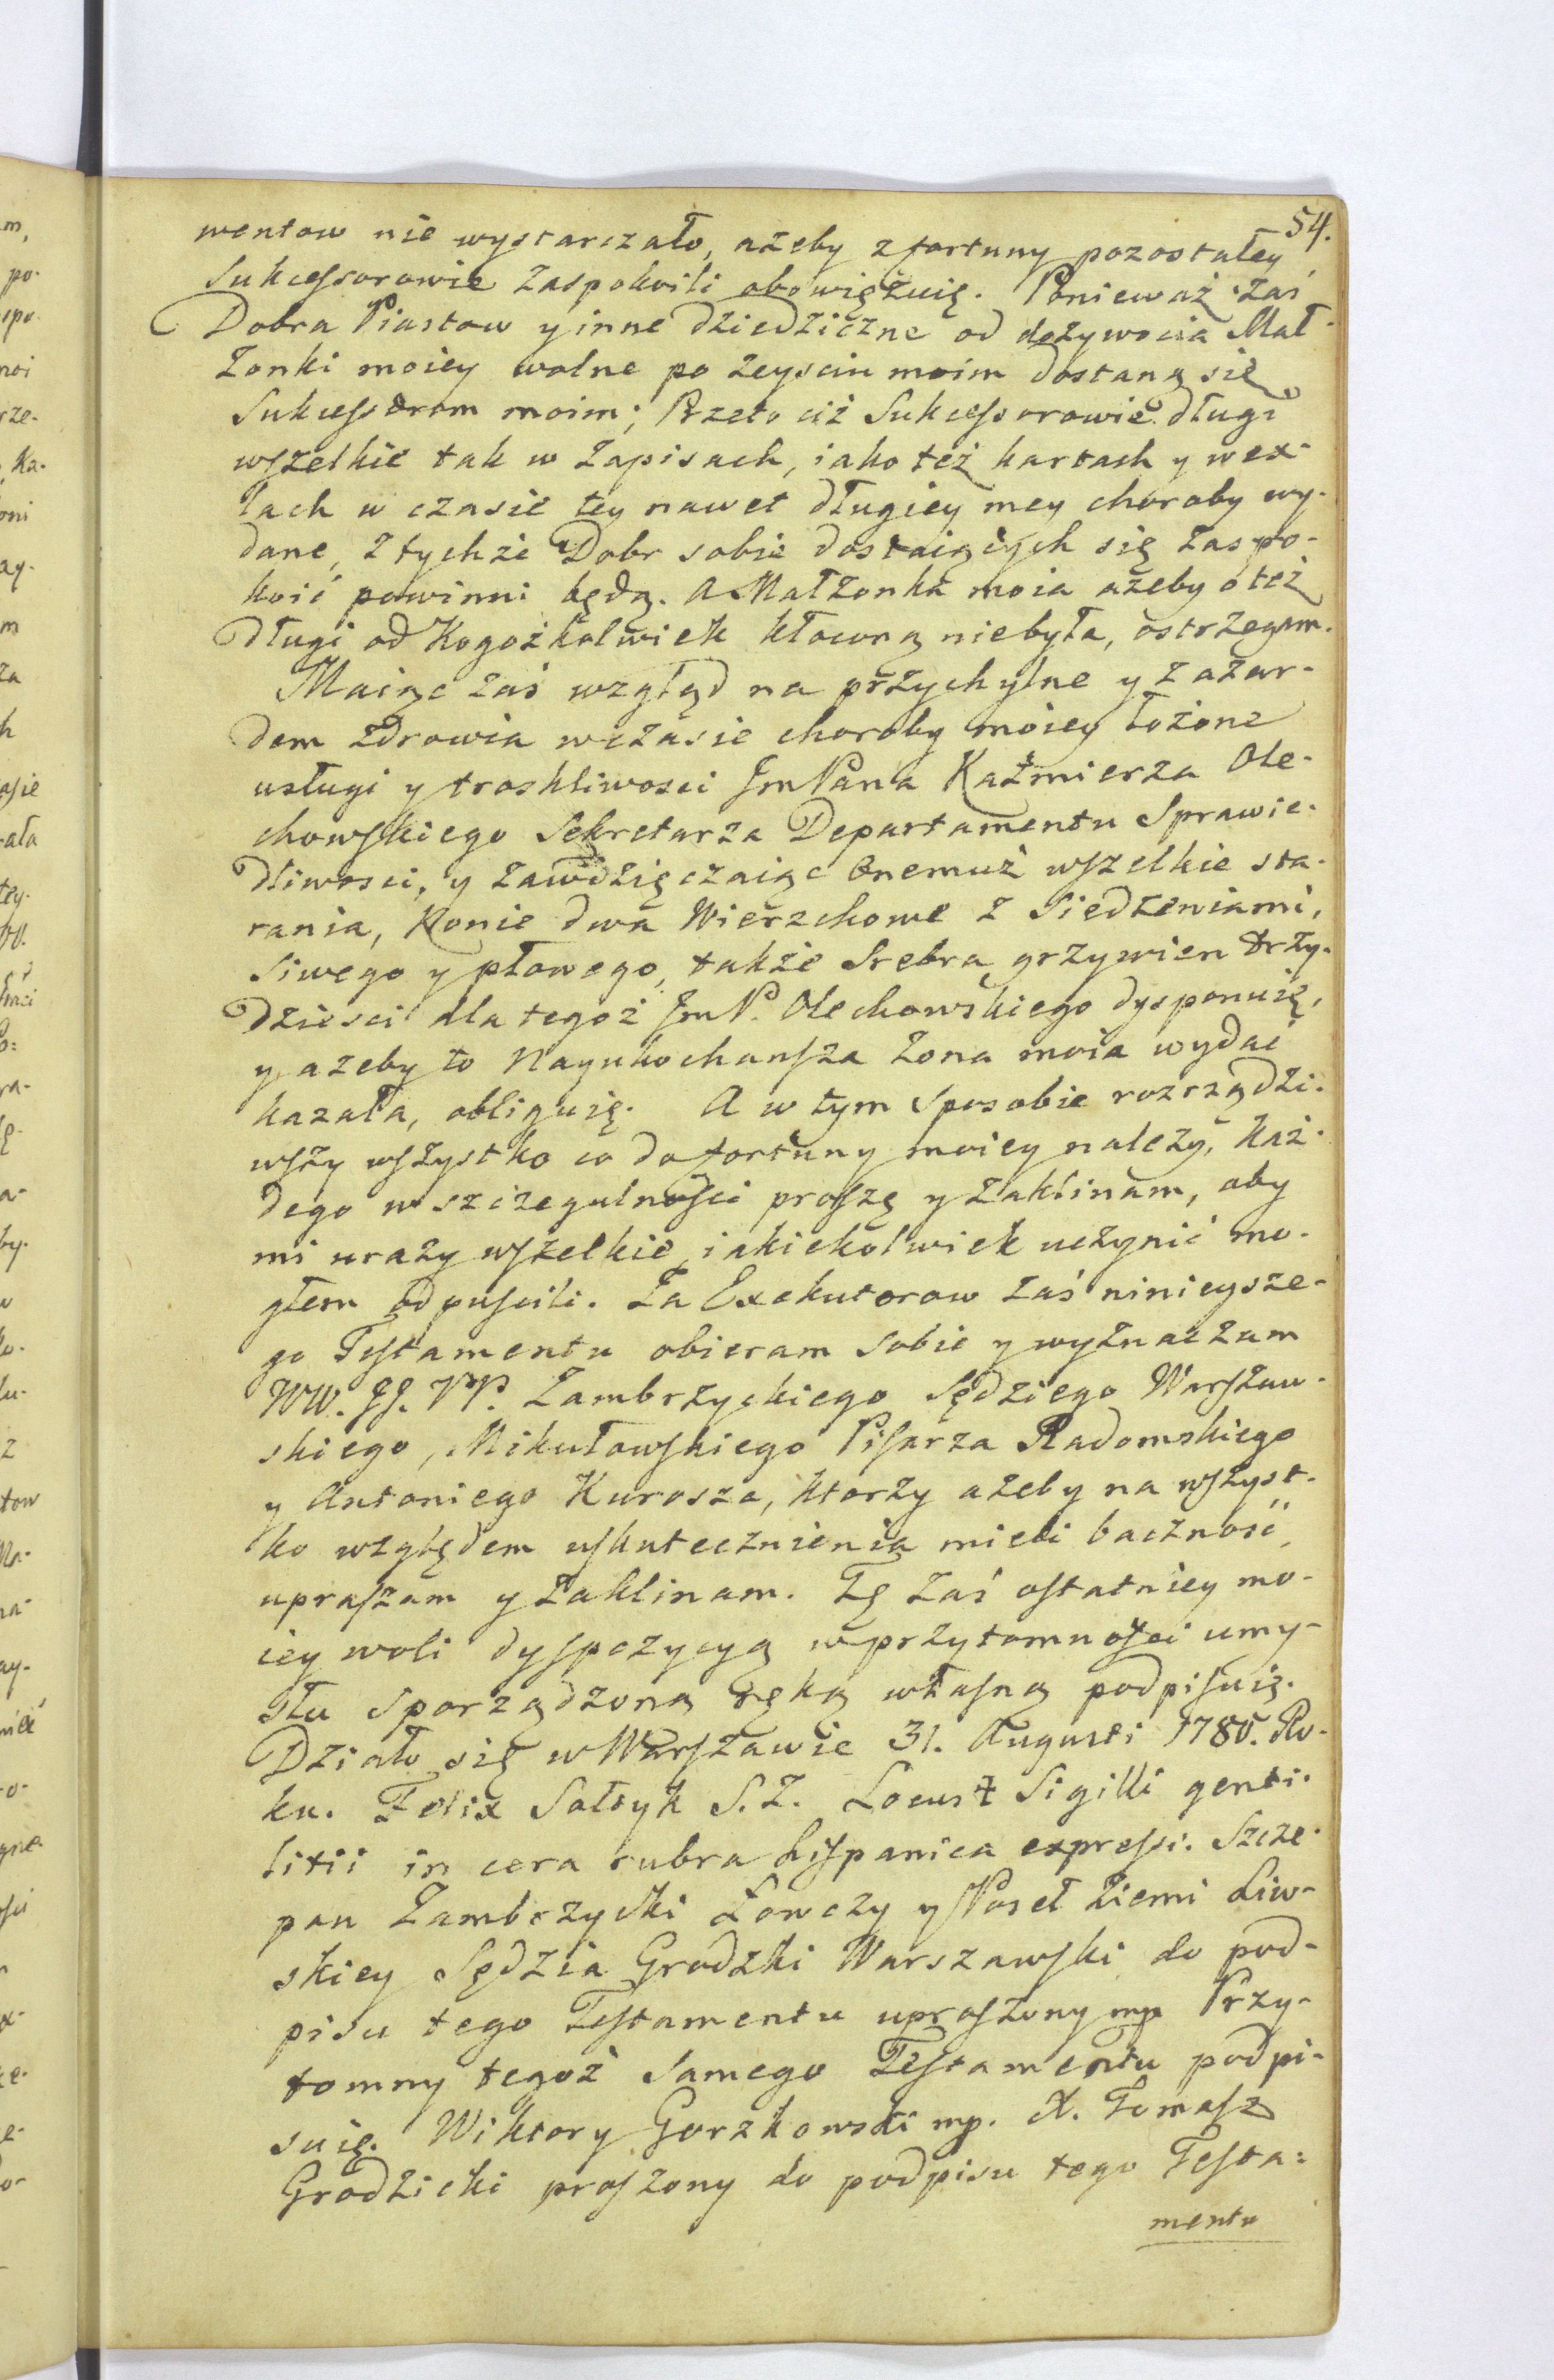 54.
mentow nie wystarczało, ażeby z fortuny pozostałey
Sukcessorowie zaspokoili obowięzuię. Ponieważ zaś
Dobra Piastow y inne dziedziczne od dożywocia Mał-
żonki moiey wolne po zeysciu moim dostaną się
Sukcessorom moim; Przeto ciż Sukcessorowie długi
wszelkie tak w Zapisach, iako też kartach y wex-
lach w czasie tey nawet długiey mey choroby wy-
dane, z tychże Dobr sobie dostaiących się zaspo-
koić powinni będą. A Małżonka moia ażeby o też
długi od Kogożkolwiek kłoconą niebyła, ostrzegam.
Maiąc zaś wzgląd na przychylne y z azar-
dem zdrowia w czasie choroby moiey łożone
usługi y troskliwosci JmPana Kaźmierza Ole-
chowskiego Sekretarza Departamentu Sprawie-
dliwosci, y zawdzięczaiąc Onemuż wszelkie sta-
rania, Konie dwa Wierzchowe z Siedzeniami,
Siwego y płowego, także Srebra grzywien trzy-
dziesci dla tegoż JmP. Olechowskiego dysponuię,
y ażeby to Nayukochansza Żona moia wydać
kazała, obliguię. A w tym sposobie rozrządzi-
wszy wszystko co do fortuny moiey należy, każ-
dego w szczegulności proszę y zaklinam, aby
mi urazy wszelkie iakiekolwiek uczynić mo-
głem odpuscili. Za Exekutorow zaś ninieysze-
go Testamentu obieram sobie y wyznaczam
WW. JJ. PP. Zambrzyckiego Sędziego Warszaw-
skiego, Mikułowskiego Pisarza Radomskiego
y Antoniego Kurosza, ktorzy ażeby na wszyst-
ko względem uskutecznienia mieli baczność,
upraszam y zaklinam. Tę zaś ostatniey mo-
iey woli dyspozycyą w przytomności umy-
słu sporządzoną ręką własną podpisuię.
Działo się w Warszawie 31. Augusti 1780. Ro-
ku. Felix Sołtyk S. Z. Locus Sigilli genti-
litii in cera rubra hispanica expressi. Szcze-
pan Zambrzycki Łowczy y Poseł Ziemi Liw-
skiey Sędzia Grodzki Warszawski do pod-
pisu tego Testamentu uproszony mp Przy-
tomny tegoż samego Testamentu podpi-
suię. Wiktory Gorzkowski mp. X. Tomasz
Grodzicki proszony do podpisu tego Testa=
mentu